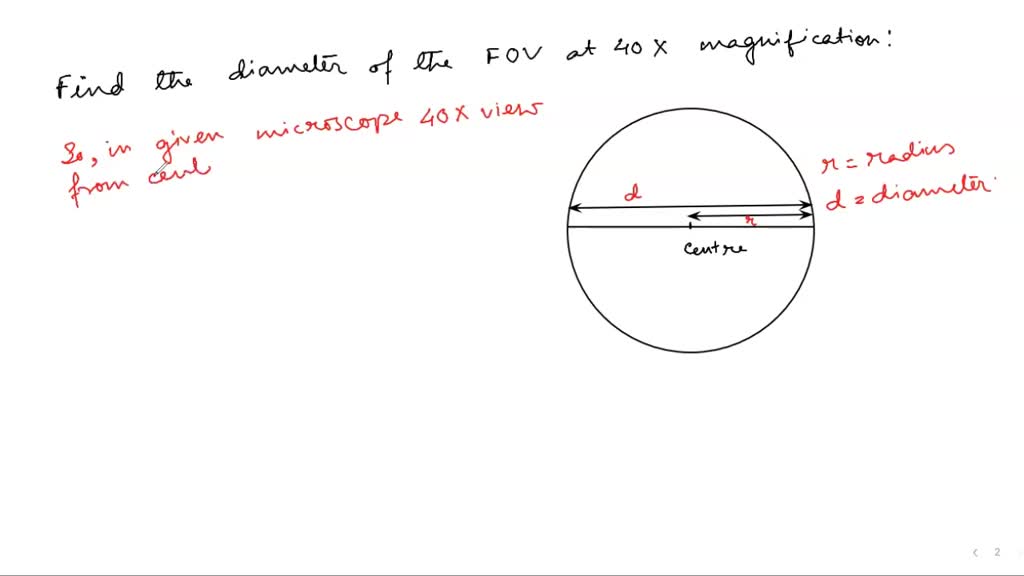 Find the diameter of the FOV at 40X magnification:
So, in given microscope 40X view
from cent
r = radius
d = diameter
d
r
Centre
2